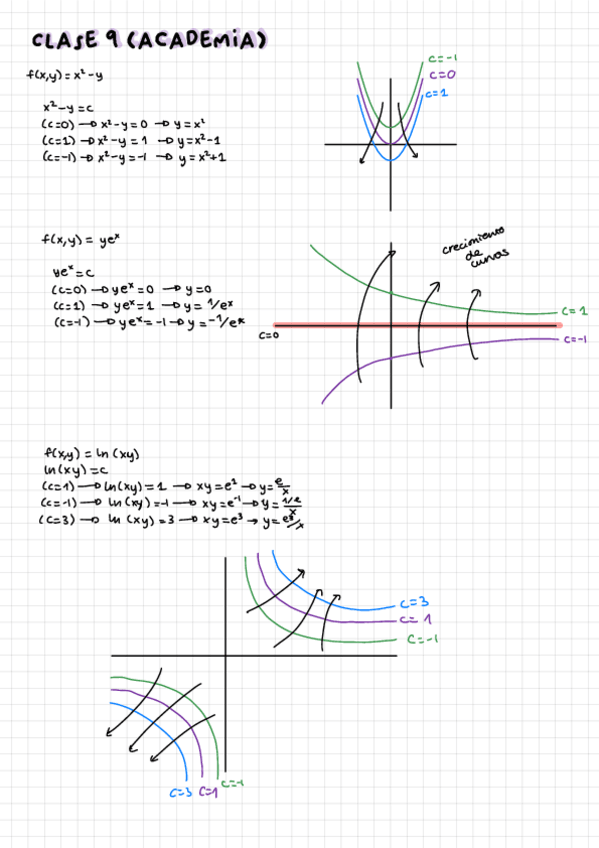 CLASE 9 (ACADEMIA)
f(x,y) = x²-y
x²-y=c
(c=0) → x²-y=0 → y=x²
(c=1) → x²-y=1 → y=x²-1
(c=-1) → x²-y=-1 → y=x²+1
c=-1
c=0
c=1
f(x,y) = yeˣ
yeˣ=c
(c=0) → yeˣ=0 → y=0
(c=1) → yeˣ=1 → y=1/eˣ
(c=-1) → yeˣ=-1 → y=-1/eˣ
crecimiento
de
curvas
c=1
c=0
c=-1
f(x,y) = ln(xy)
ln(xy)=c
(c=1) → ln(xy)=1 → xy=e¹ → y=e/x
(c=-1) → ln(xy)=-1 → xy=e⁻¹ → y=1/e/x
(c=3) → ln(xy)=3 → xy=e³ → y=e³/x
c=3
c=1
c=-1
c=3 c=1 c=-1